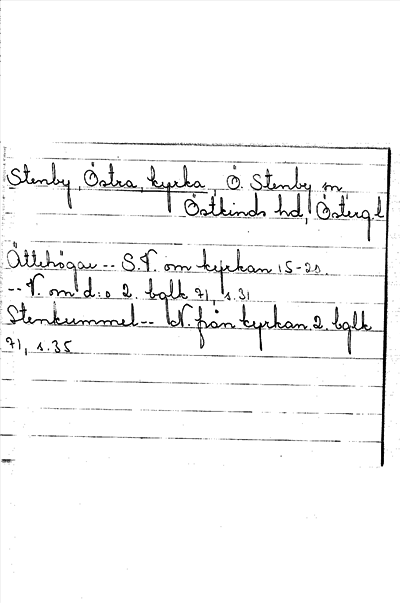 Stenby, Östra, kyrka, Ö. Stenby sn
Östkinds hd, Östergl
Ättehögar -- S.V. om kyrkan 15-20.
-- V. om d:o 2. bglk 71, s. 31
Stenkummel -- N. från kyrkan. 2. bglk
71, s. 35